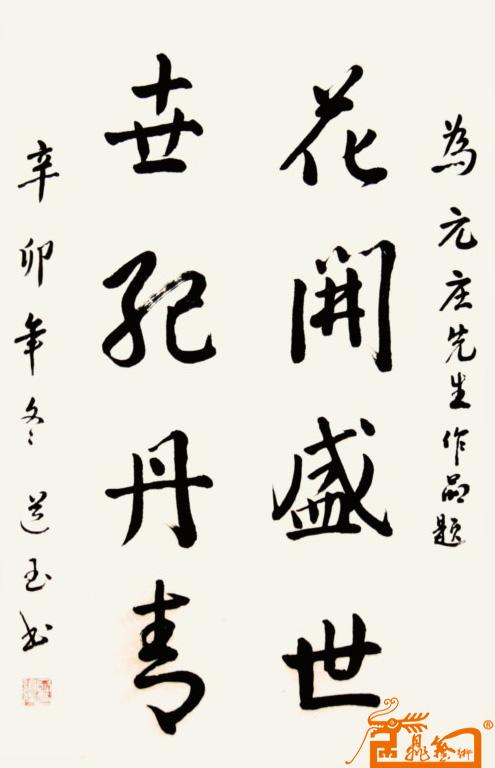 為元庄先生作品題
花開盛世
卋紀丹青
辛卯年冬道玉书